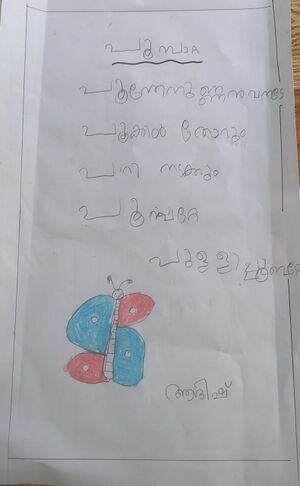 പൂമ്പാറ്റ
പൂന്തേനുണ്ണാൻ വന്നു
പൂക്കൾ തോറും
പാറി നടക്കും
പൂമ്പാറ്റേ
പുള്ളി പൂമ്പാറ്റേ
ആദിഷ്